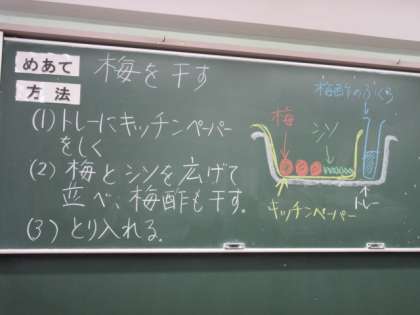 めあて 梅を干す
方法
(1)トレーにキッチンペーパー
をしく
(2)梅とシソを広げて
並べ、梅酢も干す。
(3)とり入れる。
梅酢のふくろ
梅
シソ
キッチンペーパー
トレー